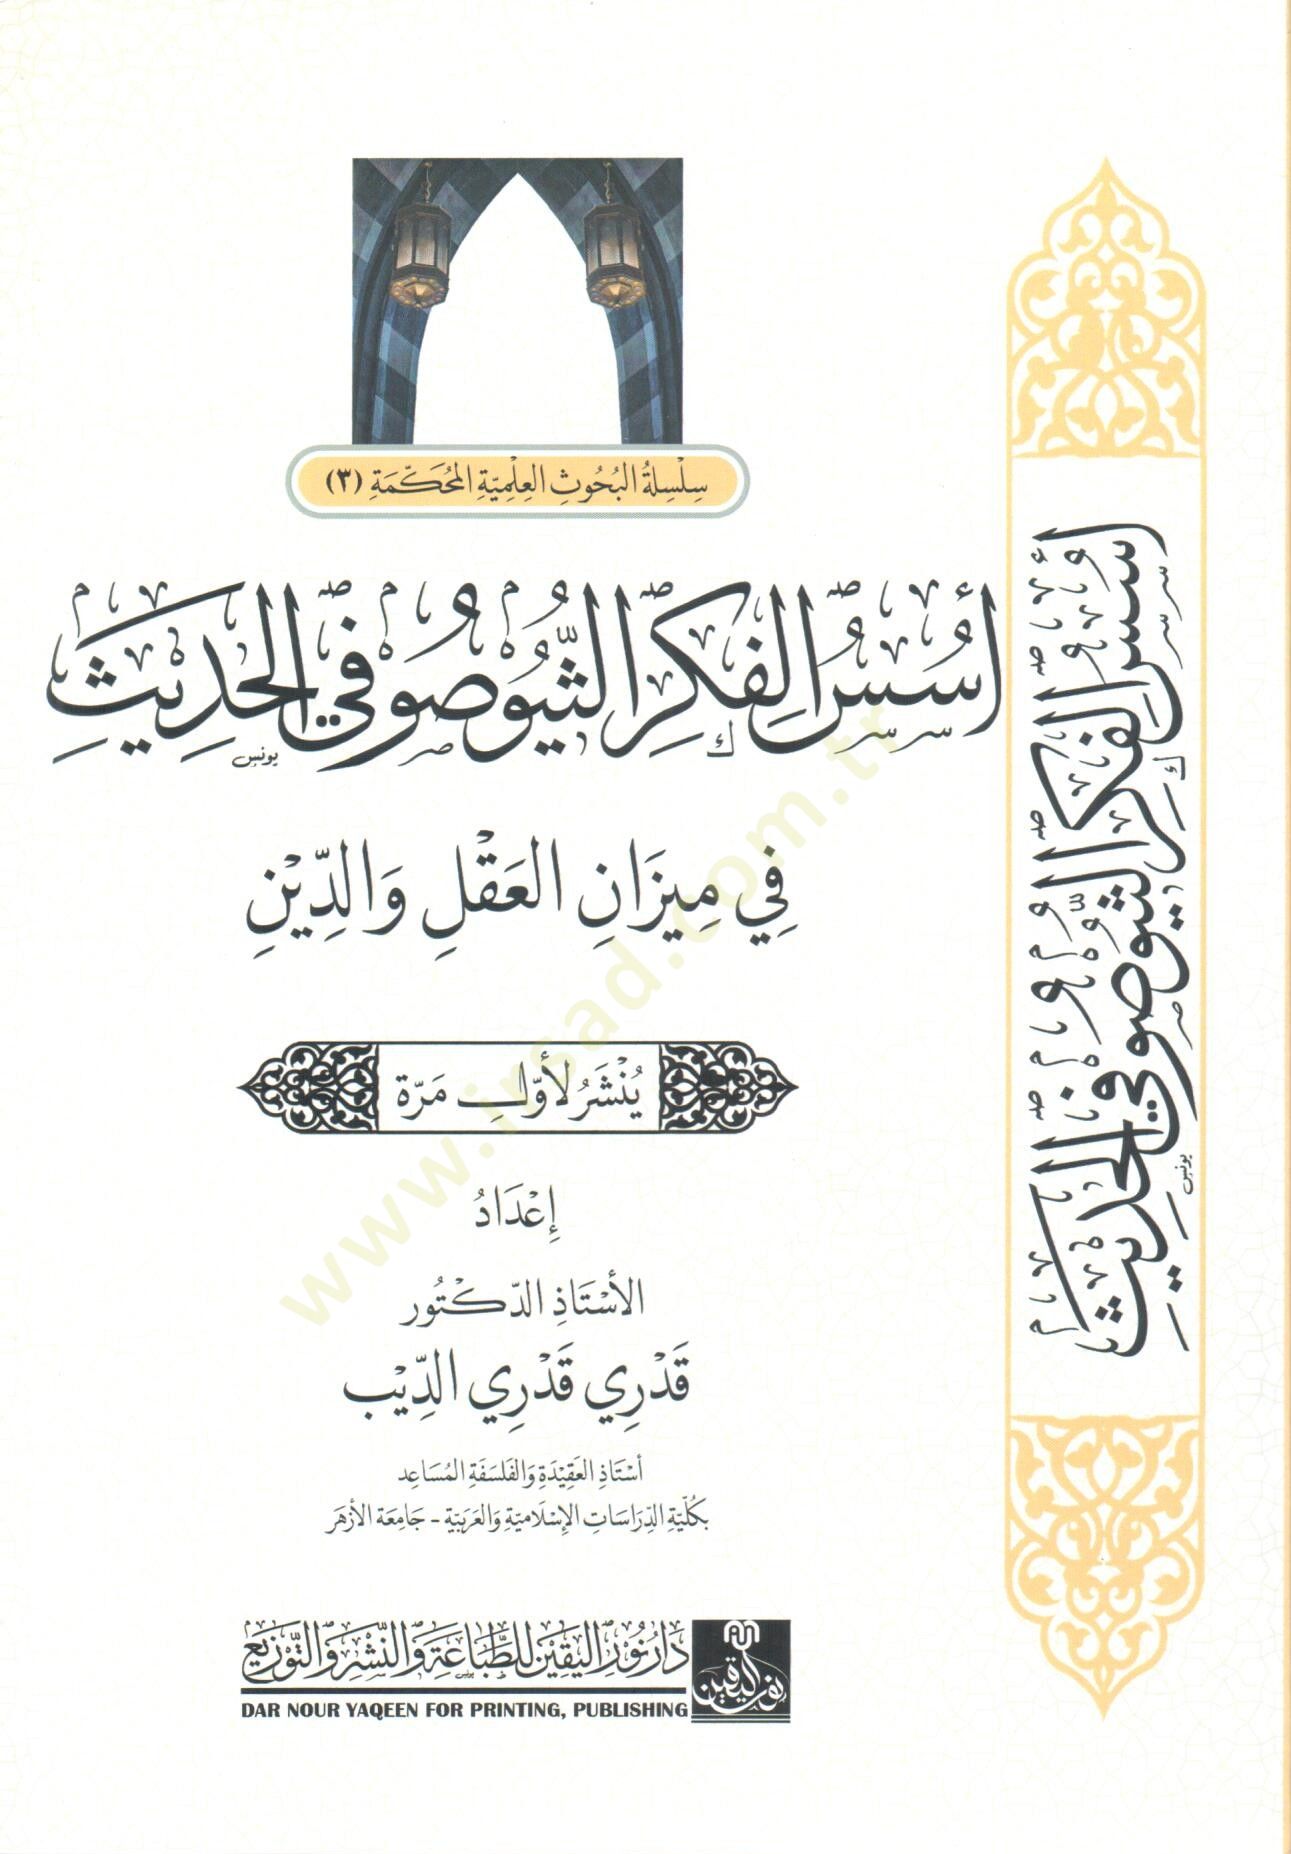 سِلْسِلَةُ البُحُوثِ العِلْمِيَّةِ المُحَكَّمَةِ (٣)
أُسُسُ الفِكْرِ الثِّيُوصُوفِي الحَدِيثِ
يونس
فِي مِيزَانِ العَقْلِ وَالدِّيْنِ
يُنْشَرُ لأَوَّلِ مَرَّة
إِعْدَادُ
الأُسْتَاذِ الدَّكْتُور
قَدْرِي قَدْرِي الدِّيْب
أُسْتَاذِ العَقِيْدَةِ وَالفَلسَفَةِ المُسَاعِد
بِكُلِّيَّةِ الدِّرَاسَاتِ الإِسْلَامِيَّةِ وَالعَرَبِيَّةِ - جَامِعَة الأَزْهَر
دَارُ نُورِ اليَقِيْنِ لِلطِّبَاعَةِ وَالنَّشْرِ وَالتَّوْزِيْعِ
DAR NOUR YAQEEN FOR PRINTING, PUBLISHING
نور اليقين
أسس الفكر الثيوصوفي الحديث
يونس
www.irsad.com.tr